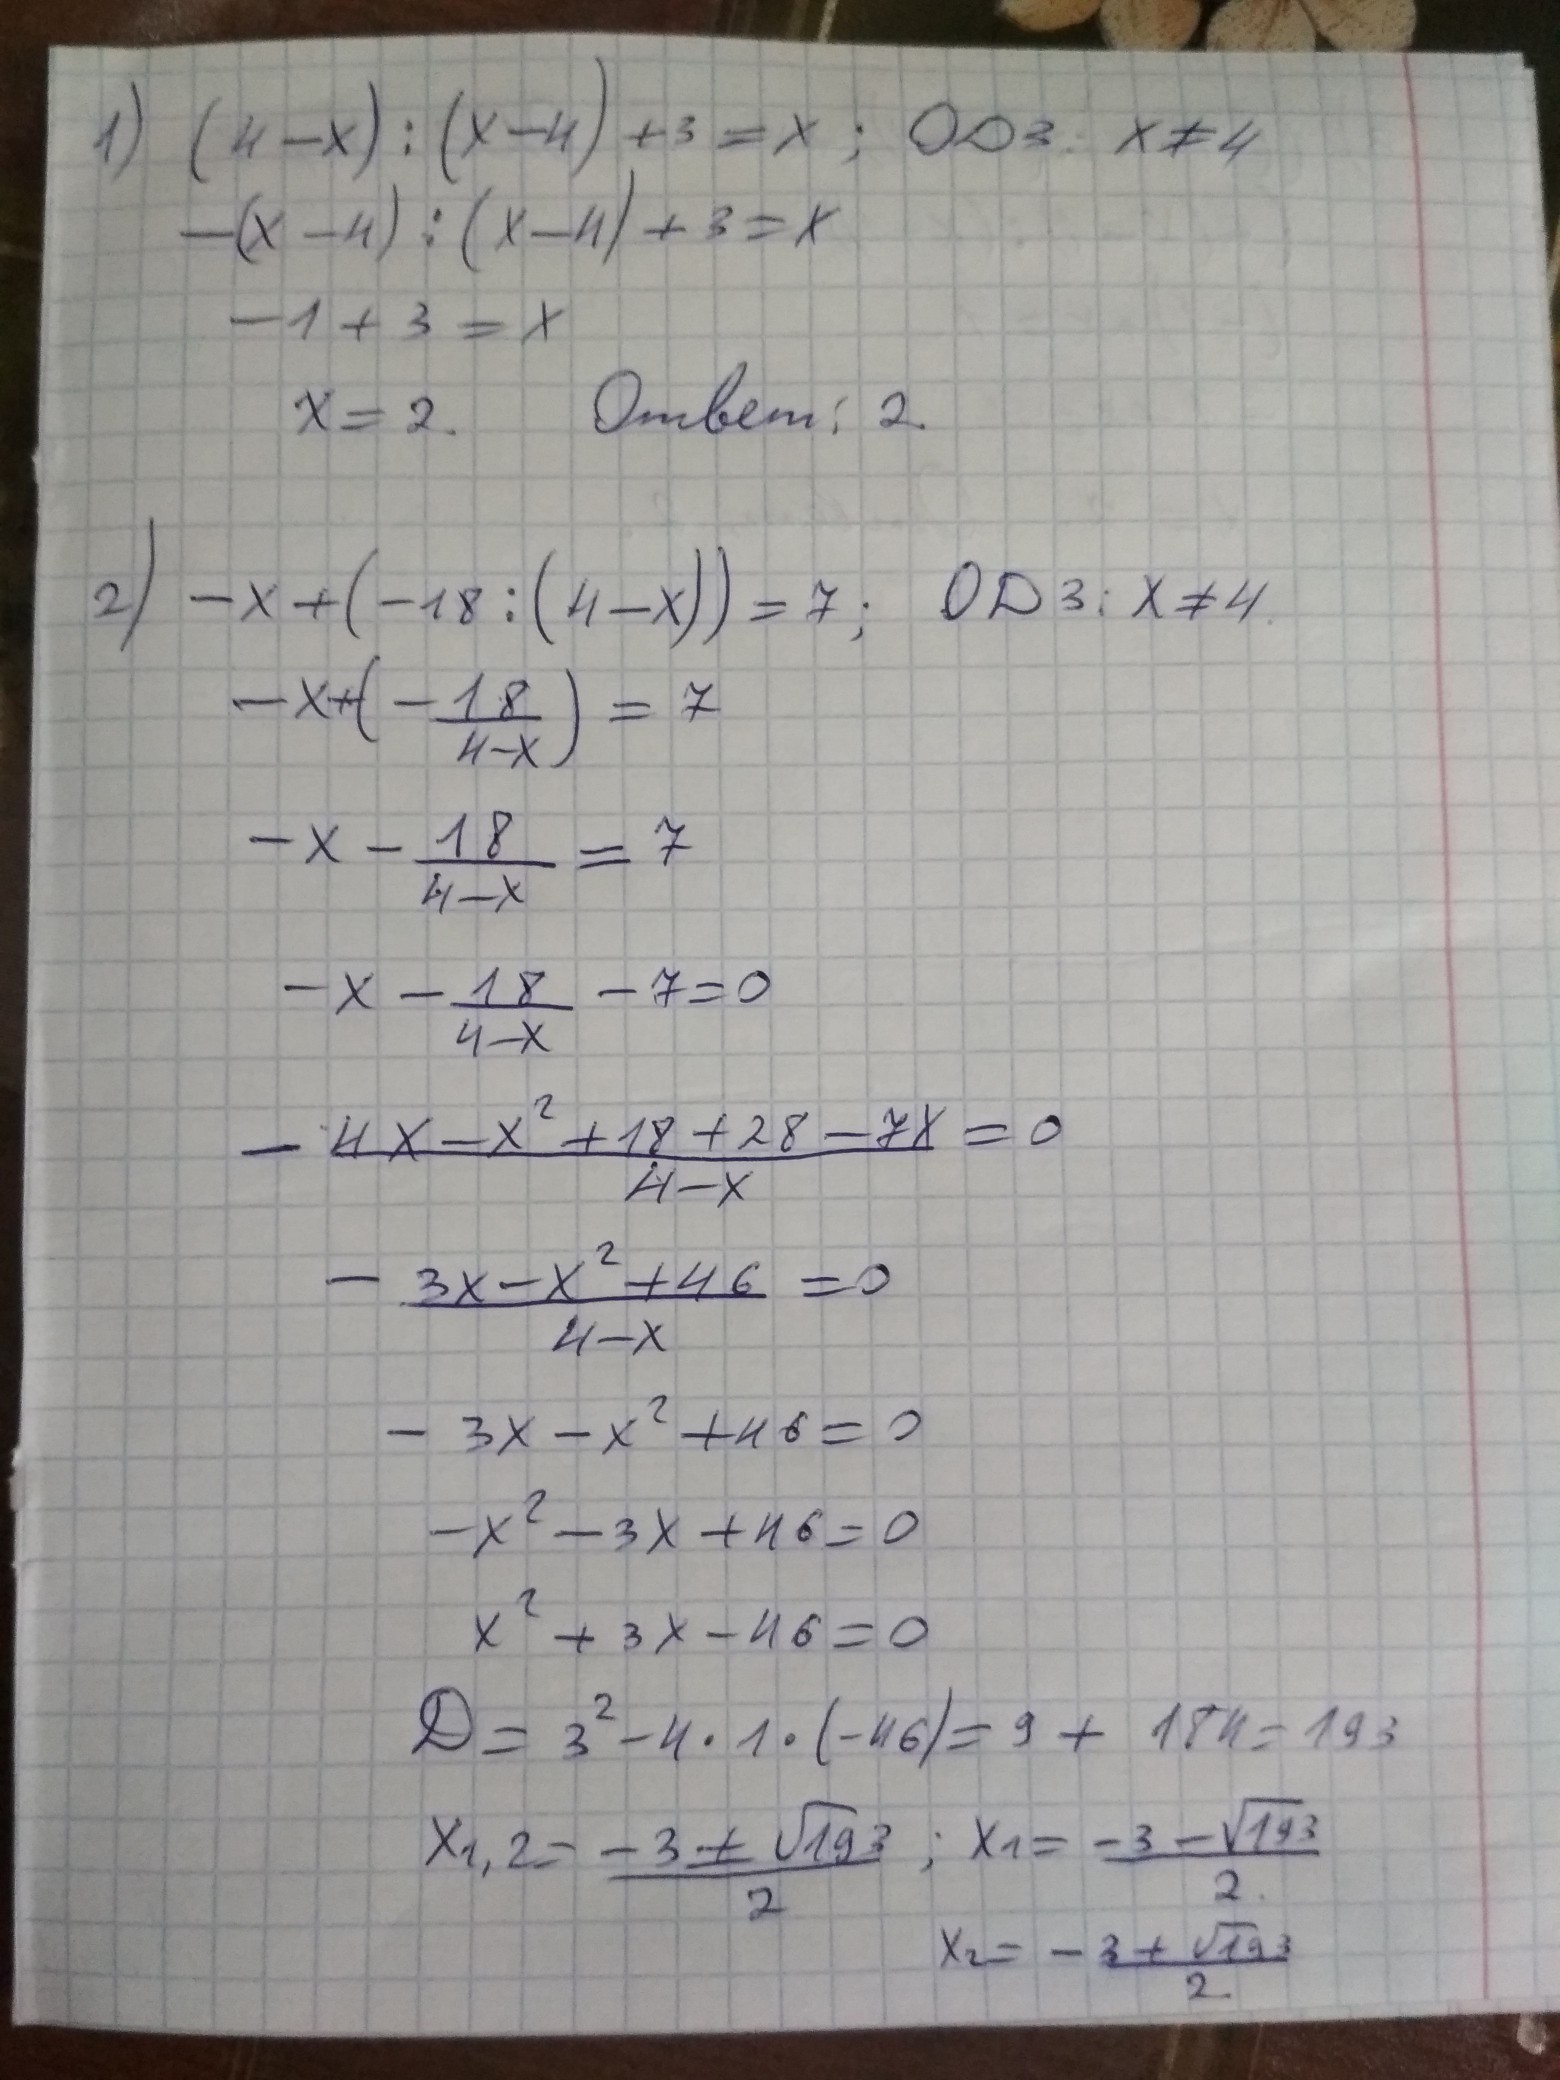 1) (4-x):(x-4)+3=x; ОДЗ: x≠4
-(x-4):(x-4)+3=x
-1+3=x
x=2. Ответ: 2.
2) -x+(-18:(4-x))=7; ОДЗ: x≠4.
-x+(-18/(4-x))=7
-x-18/(4-x)=7
-x-18/(4-x)-7=0
-(4x-x²+18+28-7x)/(4-x)=0
-(3x-x²+46)/(4-x)=0
-3x-x²+46=0
-x²-3x+46=0
x²+3x-46=0
D=3²-4·1·(-46)=9+184=193
x1,2=(-3±√193)/2; x1=(-3-√193)/2.
x2=(-3+√193)/2.